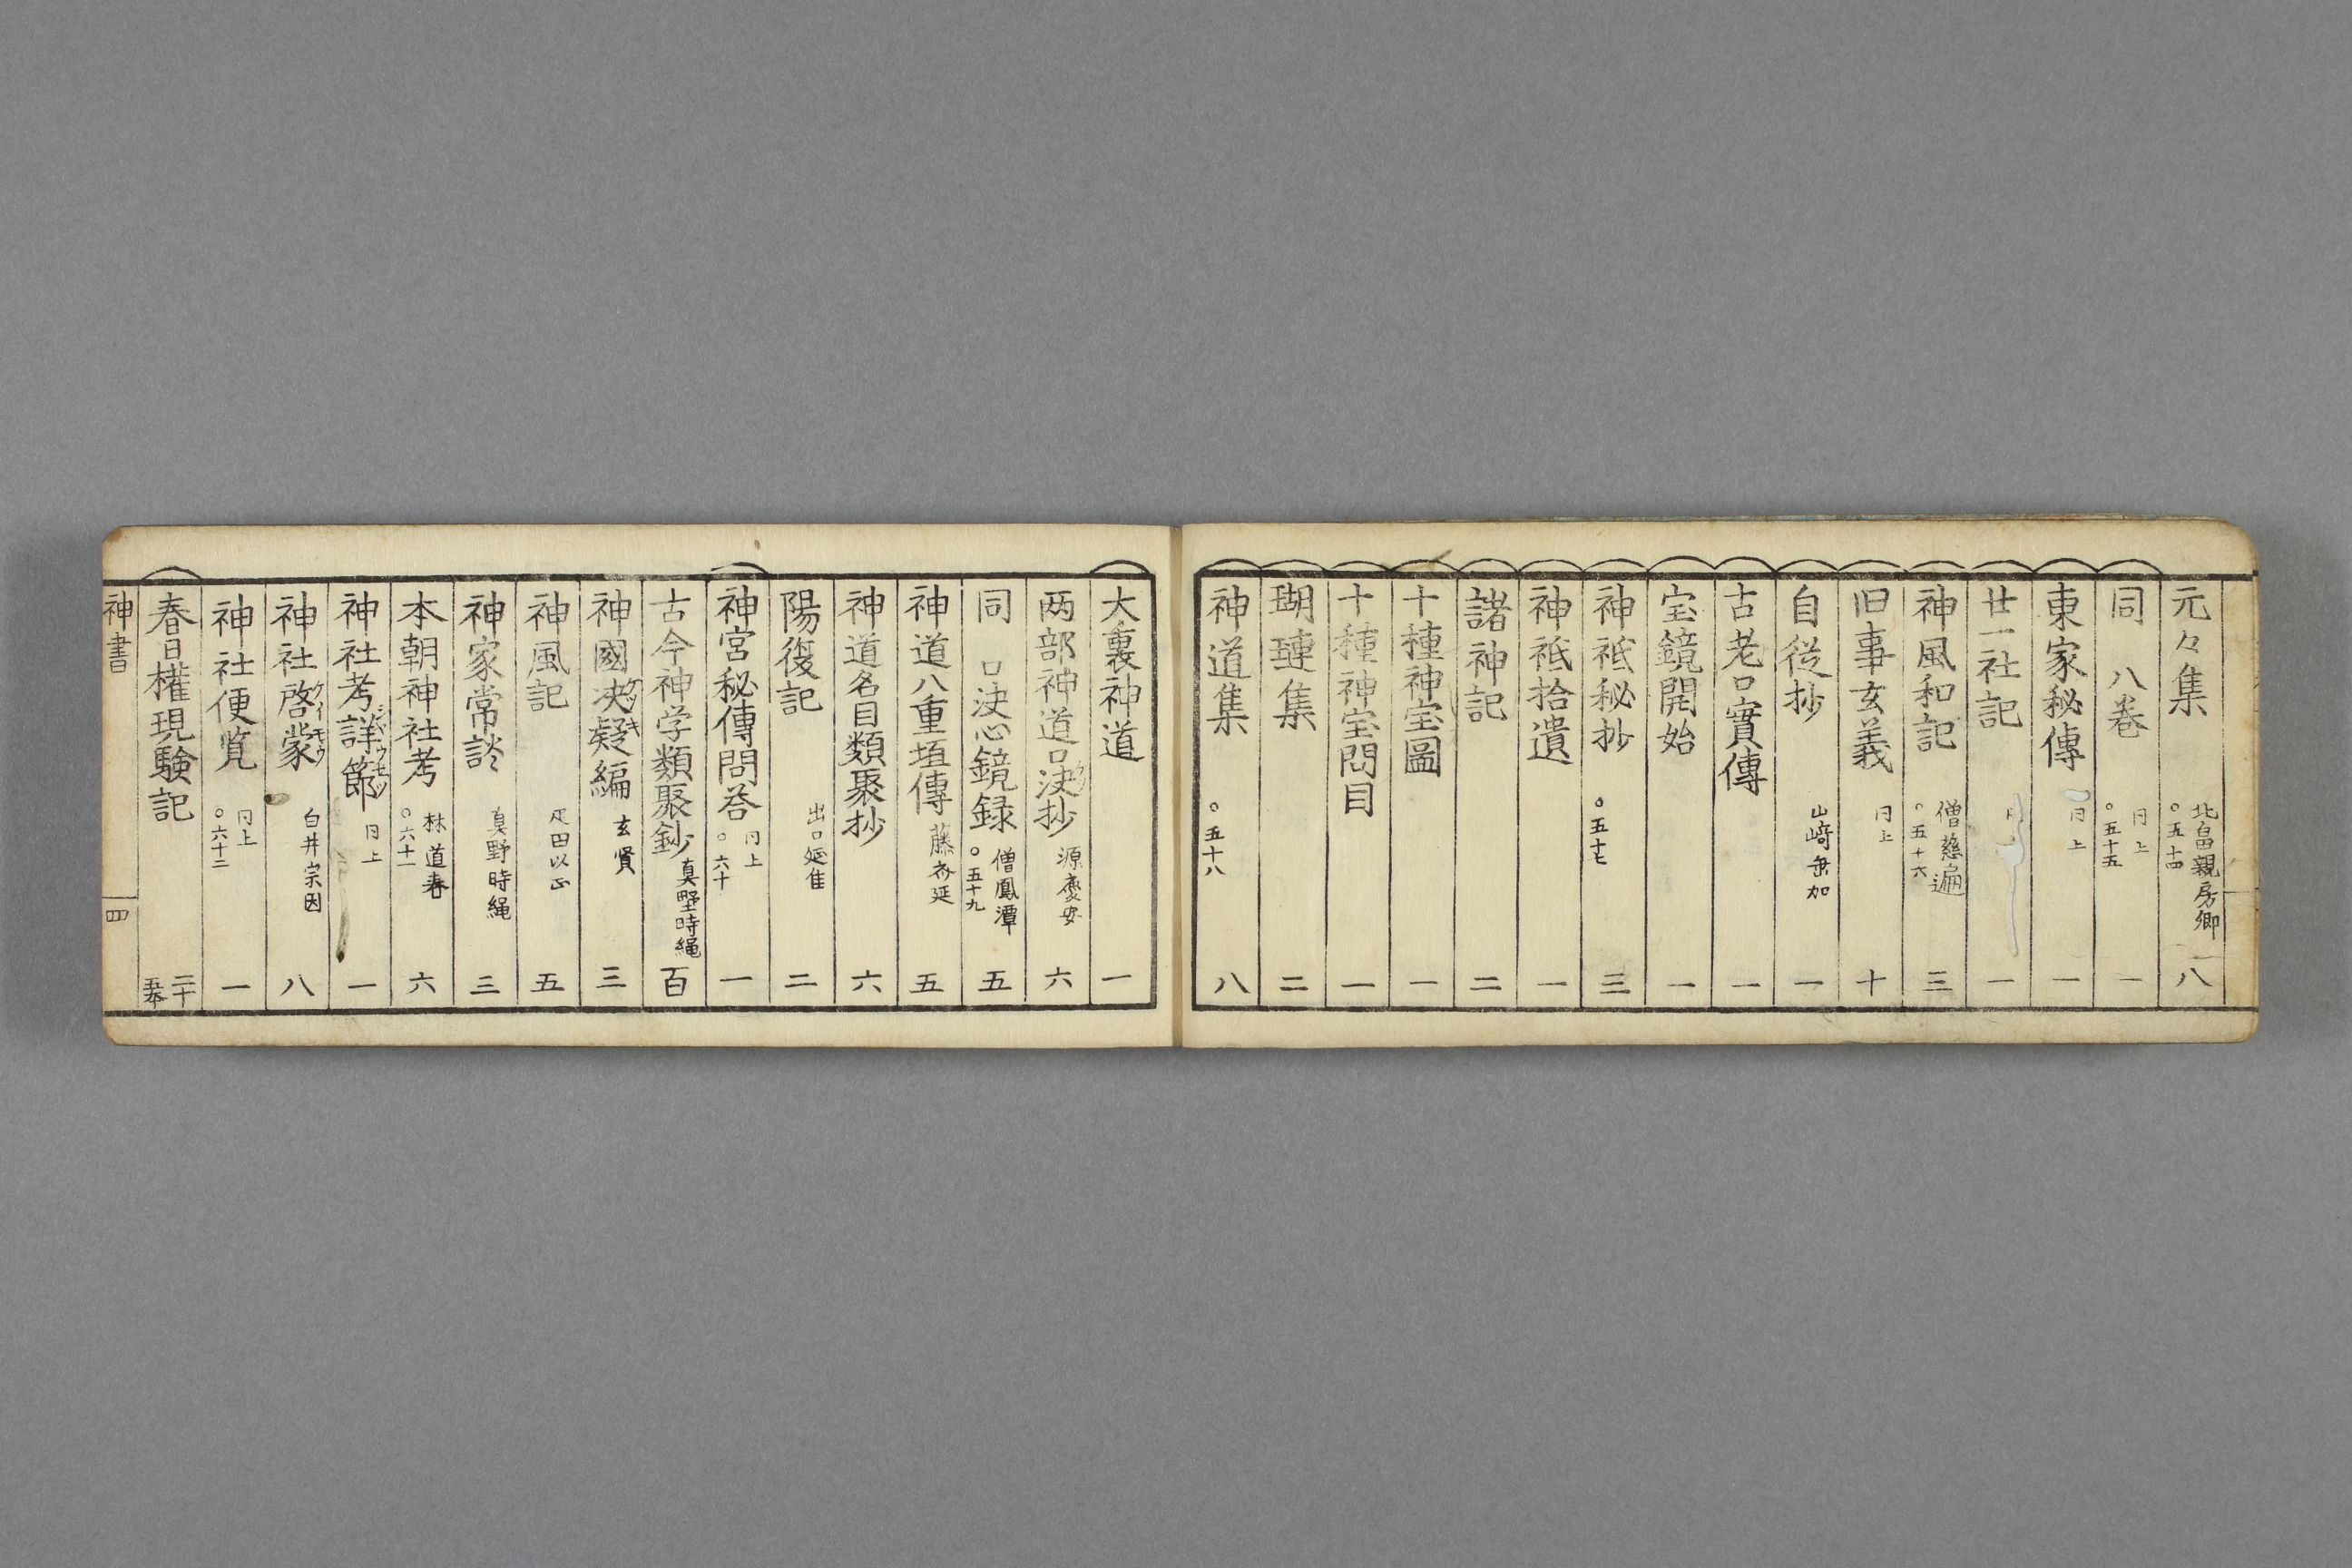 元々集 北畠親房卿 ○五十四 八
同 八巻 同上 ○五十五 一
東家秘傳 同上 一
廿一社記 一
神風和記 僧慈遍 ○五十六 三
旧事玄義 同上 十
自従抄 山﨑垂加 一
古老口實傳 一
宝鏡開始 一
神祇秘抄 ○五十七 三
神祇拾遺 一
諸神記 二
十種神宝圖 一
十種神宝問目 一
瑚璉集 二
神道集 ○五十八 八
大裏神道 一
两部神道口決抄 源慶安 六
同 口决心鏡録 僧鳳潭 ○五十九 五
神道八重垣傳 藤延 五
神道名目類聚抄 六
陽復記 出口延佳 二
神宮秘傳問荅 同上 ○六十 一
古今神学類聚鈔 真野時縄 百
神國决疑編 玄賢 三
神風記 疋田以正 五
神家常談 真野時縄 三
本朝神社考 林道春 ○六十一 六
神社考詳節 同上 一
神社啓蒙 ケイモウ 白井宗因 八
神社便覧 同上 ○六十二 一
春日權現験記 二十 五本
神書 四